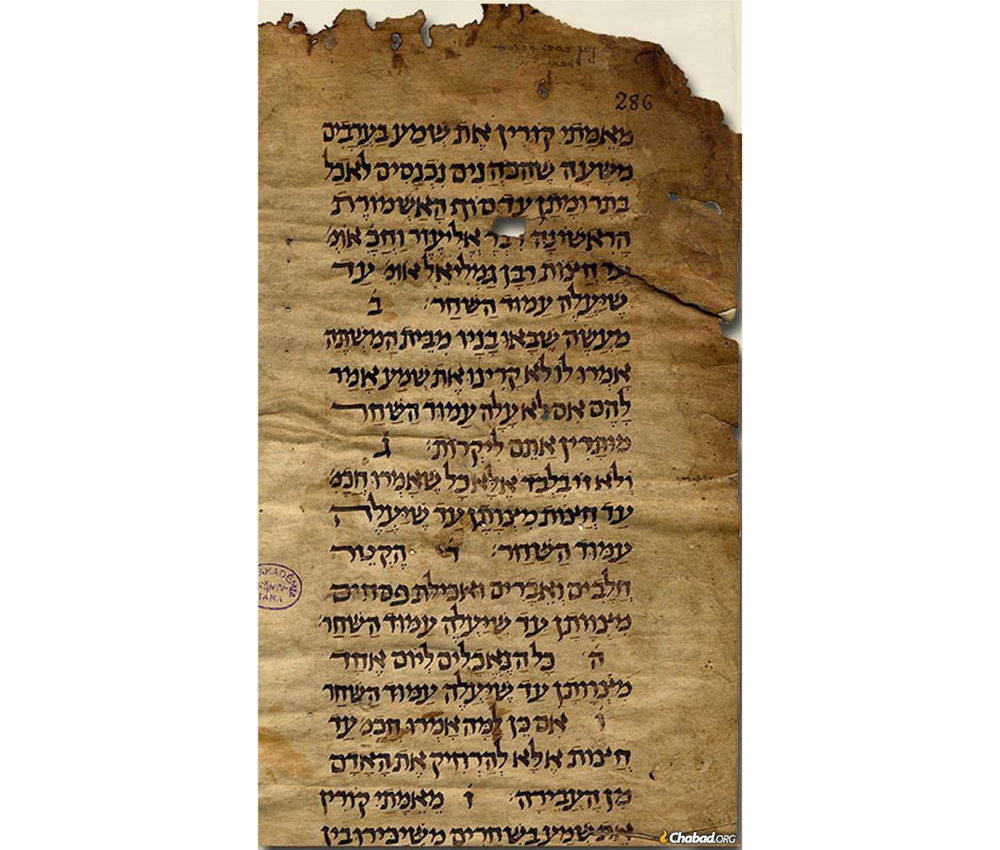 286
מאמתי קורין את שמע בערבים
משעה שהכהנים נכנסים לאכל
בתרומתן עד סוף האשמורת
הראשונה אליעזר וחכ' אומ'
עד חצות רבן גמליאל אומ' עד
שיעלה עמוד השחר' ב
מעשה שבאו בניו מבית המשתה
אמרו לו לא קרינו את שמע אמר
להם אם לא עלה עמוד השחר
מותרין אתם ליקרות' ג
ולא זו בלבד אלא כל שאמרו חכמ'
עד חצות מצותן עד שיעלה
עמוד השחר' ד הקטר
חלבים ואברים ואכילת פסחים
מצוותן עד שיעלה עמוד השחר'
ה כל הנאכלים ליום אחד
מצוותן עד שיעלה עמוד השחר
ו אם כן למה אמרו חכמ' עד
חצות אלא להרחיק את האדם
מן העבירה' ז מאמתי קורין
את שמע בשחרים משיכירו בין
AKADÉMIA
Chabad.ORG